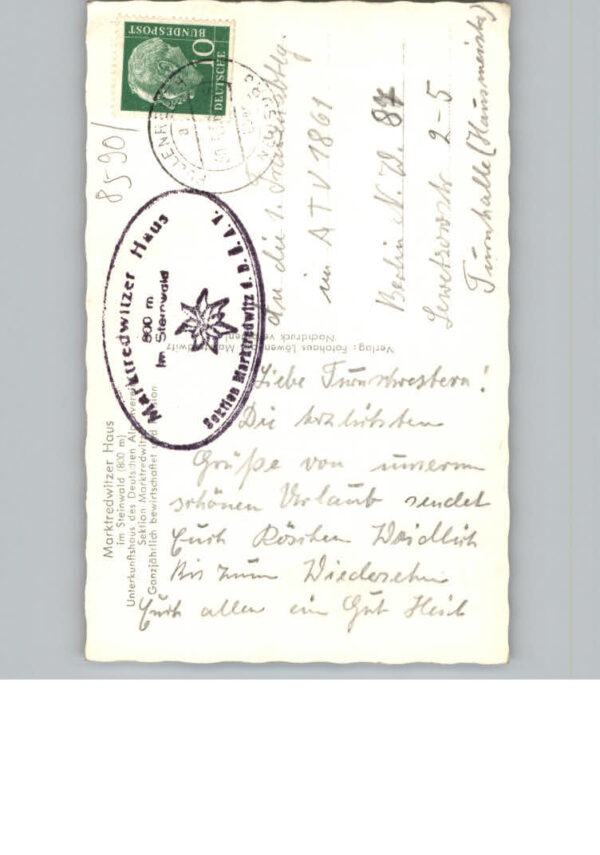 Marktredwitzer Haus
im Steinwald (800 m)
Unterkunftshaus des Deutschen Alpenvereins
Sektion Marktredwitz
Ganzjährlich bewirtschaftet
Liebe Turnschwestern!
Die herzlichsten
Grüße von unserem
schönen Urlaub sendet
Euch Röschen Weidlich
Bis zum Wiedersehn
Euch allen ein Gut Heil
8590/
DEUTSCHE
BUNDESPOST
10
Marktredwitzer Haus
800 m
im Steinwald
Sektion Marktredwitz d. D. A. V.
Verlag: Fotohaus
Nachdruck
An die 1.
im ATV 1861
Berlin N. W. 87
2-5
Turnhalle (Hausmeister)